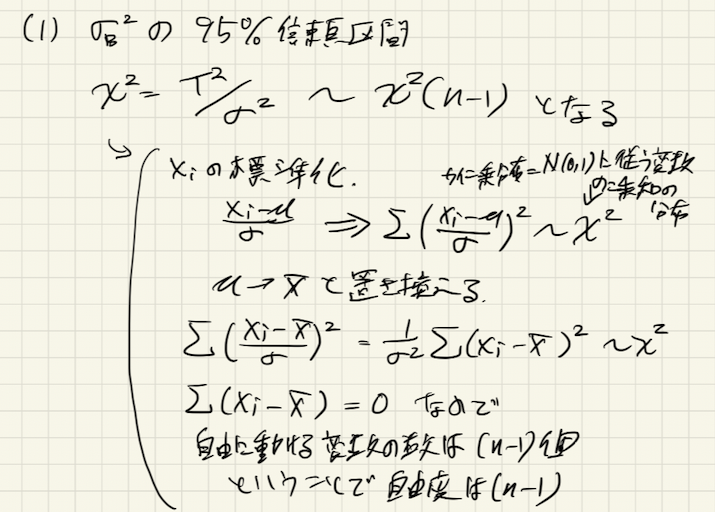 (1) σ_B² の 95% 信頼区間
χ² = T²/σ² ~ χ²(n-1) となる
xᵢ の標準化.
カイ二乗分布=N(0,1)に従う変数の二乗和の分布
(xᵢ-μ)/σ ⇒ Σ((xᵢ-μ)/σ)² ~ χ²
μ → x̄ と置き換える.
Σ((xᵢ-x̄)/σ)² = 1/σ² Σ(xᵢ-x̄)² ~ χ²
Σ(xᵢ-x̄) = 0 なので
自由に動ける変数の数は (n-1)個
ということで 自由度は (n-1)